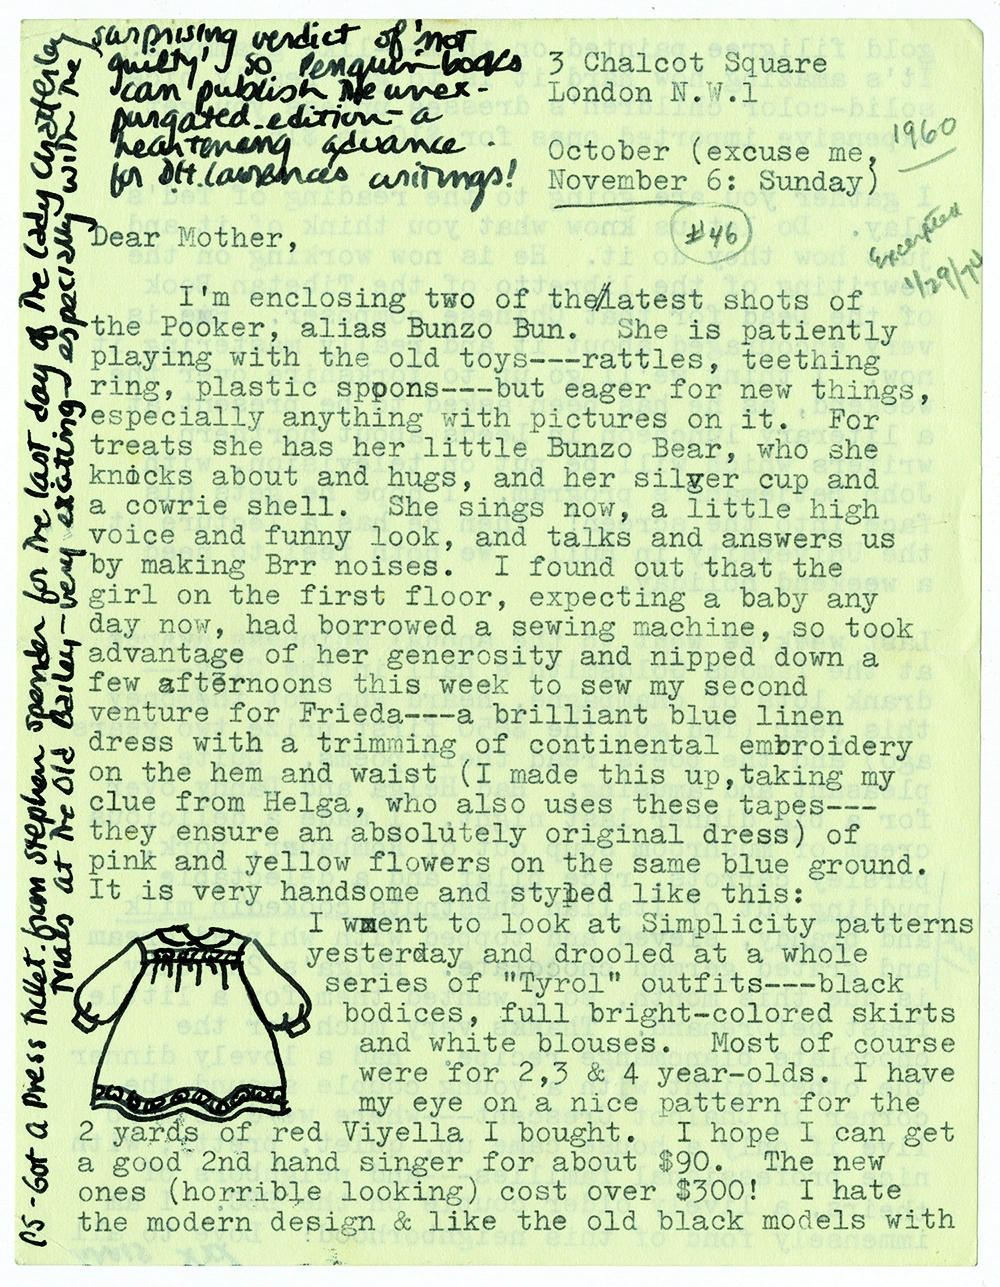 3 Chalcot Square
London N.W.1
October (excuse me,
November 6: Sunday)
1960
#46
Excerpted
1/29/74
Dear Mother,
I'm enclosing two of the/latest shots of
the Pooker, alias Bunzo Bun. She is patiently
playing with the old toys---rattles, teething
ring, plastic spoons---but eager for new things,
especially anything with pictures on it. For
treats she has her little Bunzo Bear, who she
knocks about and hugs, and her silver cup and
a cowrie shell. She sings now, a little high
voice and funny look, and talks and answers us
by making Brr noises. I found out that the
girl on the first floor, expecting a baby any
day now, had borrowed a sewing machine, so took
advantage of her generosity and nipped down a
few afternoons this week to sew my second
venture for Frieda---a brilliant blue linen
dress with a trimming of continental embroidery
on the hem and waist (I made this up,taking my
clue from Helga, who also uses these tapes---
they ensure an absolutely original dress) of
pink and yellow flowers on the same blue ground.
It is very handsome and styled like this:
I went to look at Simplicity patterns
yesterday and drooled at a whole
series of "Tyrol" outfits---black
bodices, full bright-colored skirts
and white blouses. Most of course
were for 2,3 & 4 year-olds. I have
my eye on a nice pattern for the
2 yards of red Viyella I bought. I hope I can get
a good 2nd hand singer for about $90. The new
ones (horrible looking) cost over $300! I hate
the modern design & like the old black models with
PS-Got a Press ticket from Stephen Spender for the last day of the Lady Chatterley
Trials at the Old Bailey-very exciting-especially with the
surprising verdict of 'not
guilty' so Penguin books
can publish the unex-
purgated edition-a
heartening advance
for D.H. Lawrences writings!